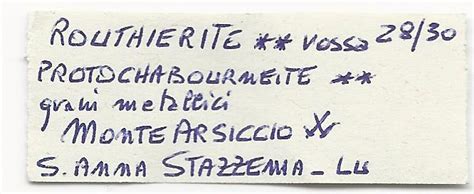 ROUTHIERITE ** rossa 28/30
PROTOCHABOURNEITE **
grani metallici
MONTE ARSICCIO X
S. ANNA STAZZEMA - LU